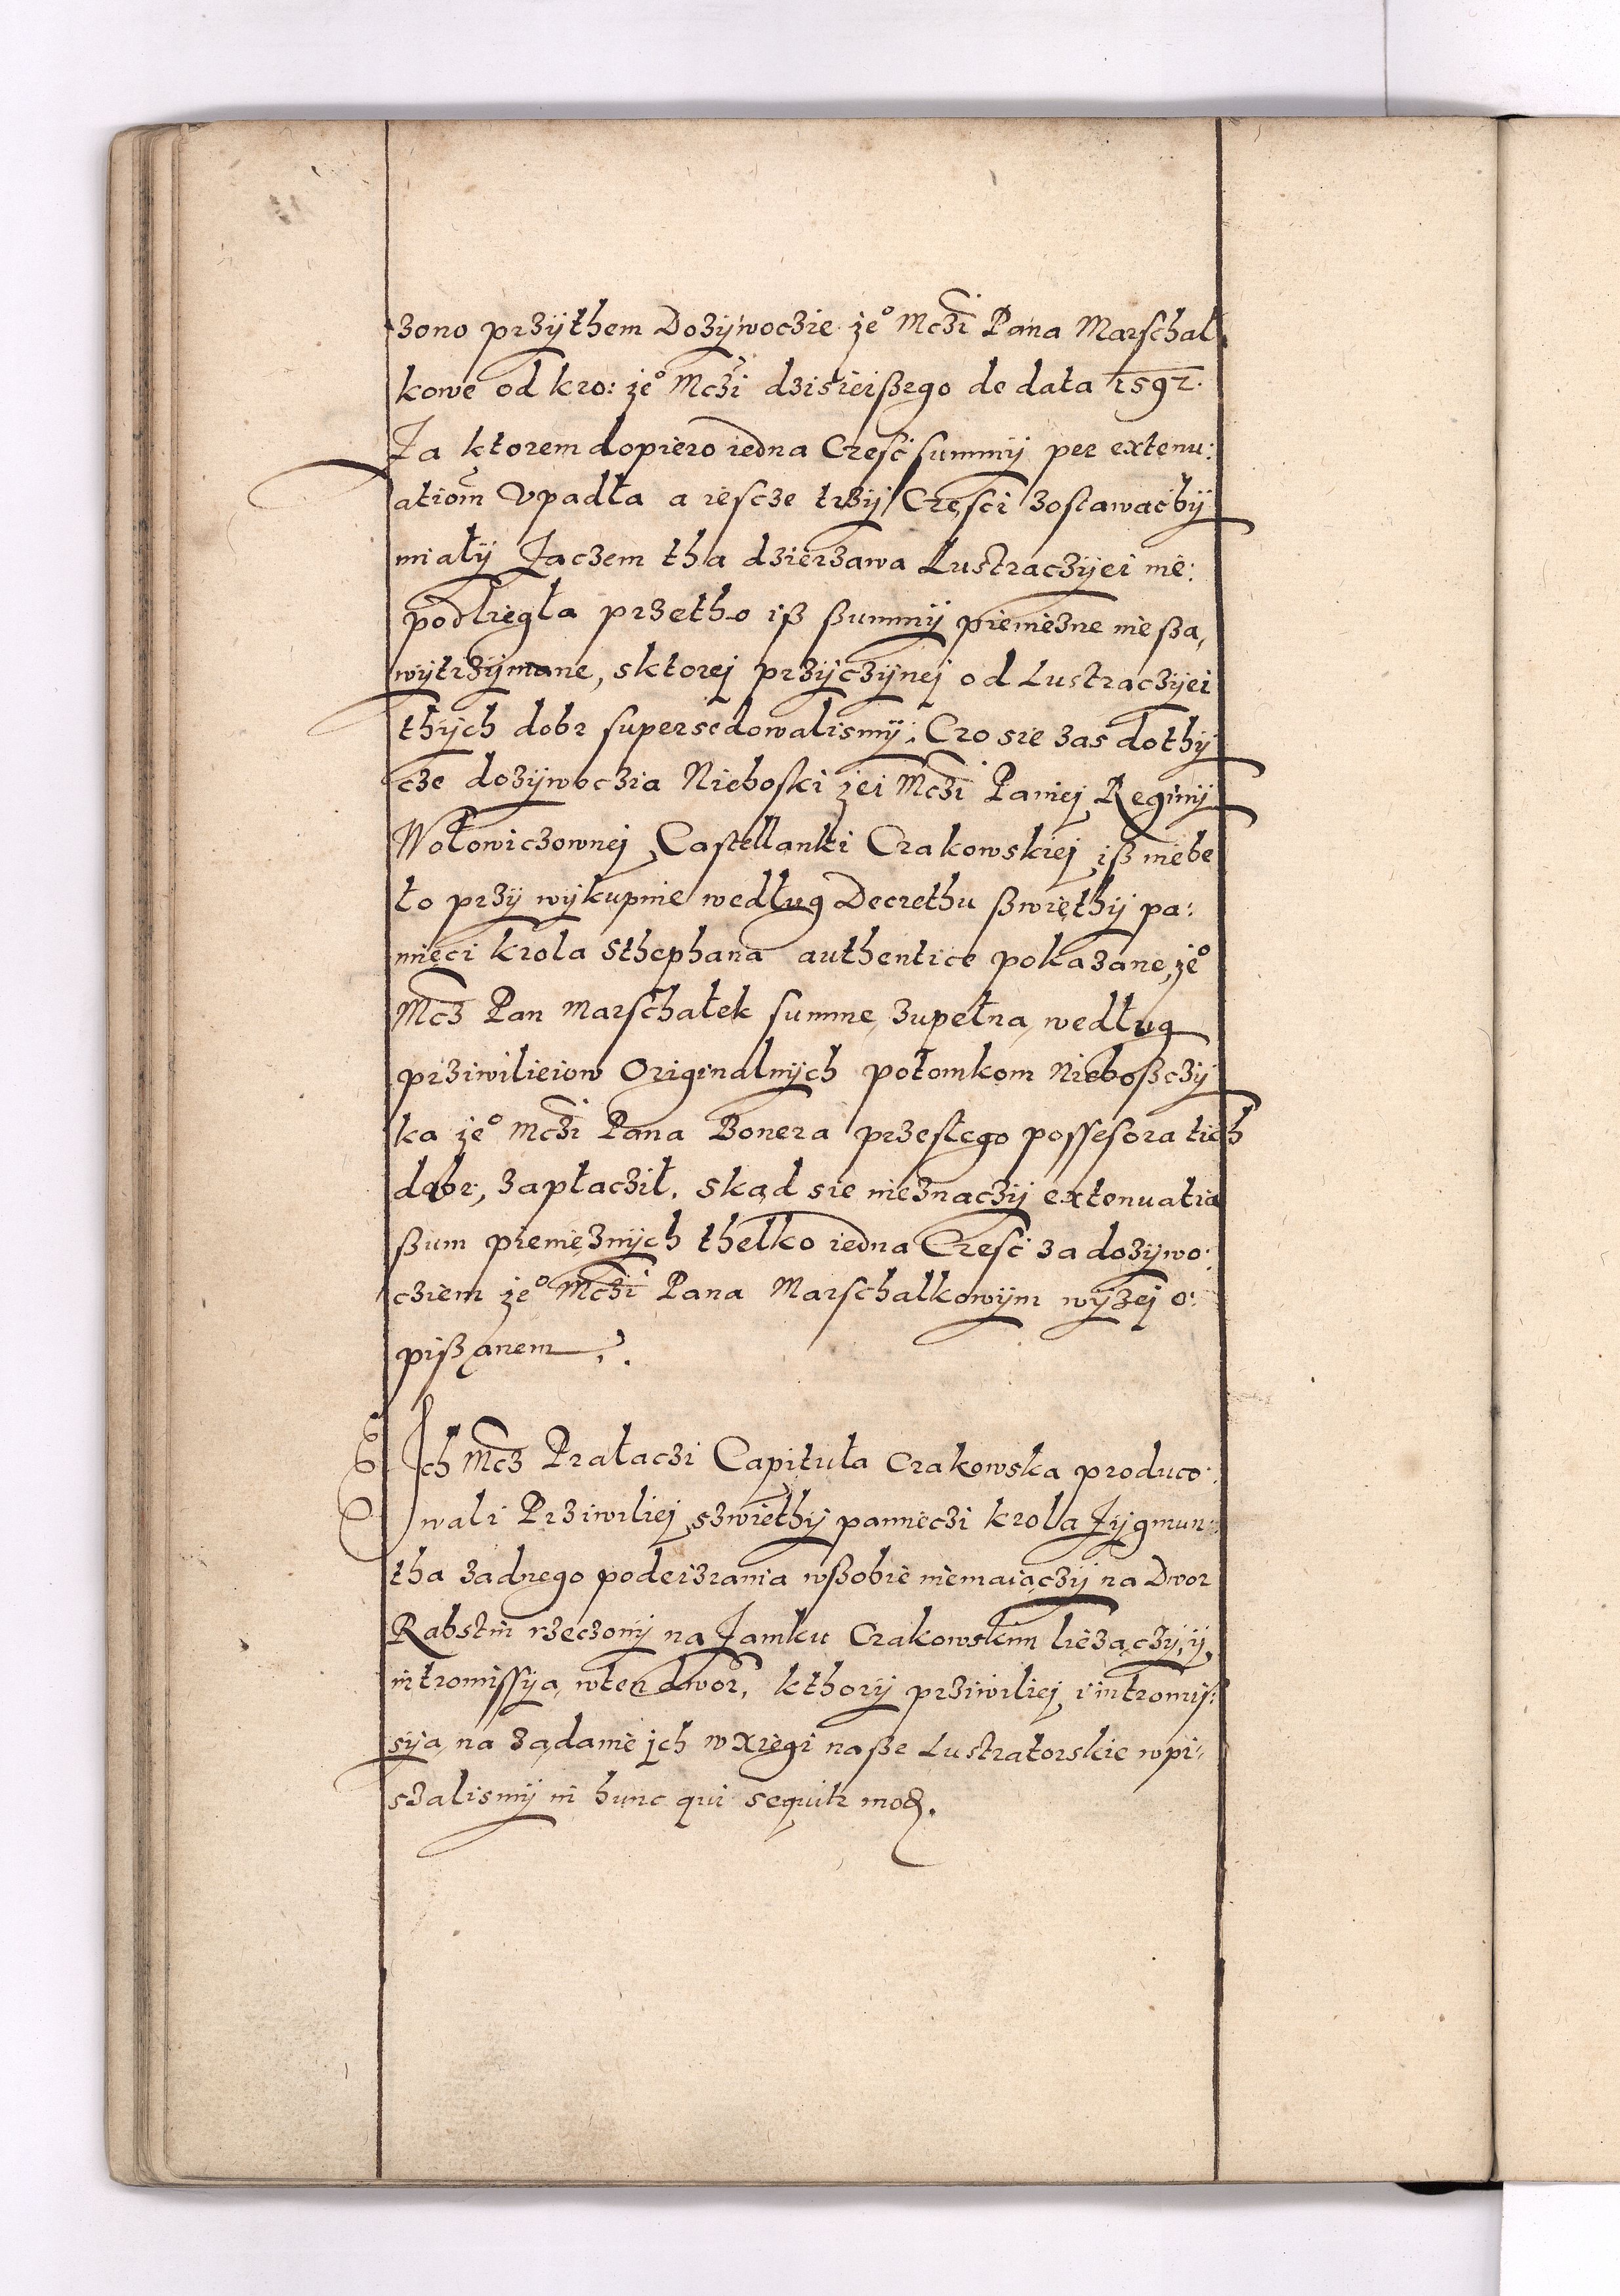 zono przÿthem Dozÿwoczie ɉeº Mczi Pana Marschal
kowe od kro: ɉeº Mczi dzisieißego de data 1592.
Za ktorem dopiero iedna Czesć summÿ per extenu:
ationem Vpadła a iescze trzÿ Częsci zostawaćbÿ
miałÿ Zaczem tha dzierzawa Lustraczÿei nie:
podliegła przetho iß ßummÿ pieniezne nie ßą
wÿtrzÿmane, sktorej przÿczÿnej od Lustraczÿei
thÿch dobr supersedowalismÿ: Czo sie zas dothÿ
cze dozÿwoczia Nieboski ɉei Mczi Paniej Reginÿ
Wołowiczownej Castellanki Crakowskiej iß niebe
ło przÿ wÿkupnie według Decrethu ßwięthÿ pa:
mięci krola Sthephana authentice pokazane, ɉeº
Mcz Pan Marschałek summę zupełną według
prziwilieiow Originalnÿch potomkom Nieboßczÿ
ka ɉeº Mczi Pana Bonera przeslego possesora tich
dobr, zapłacził, skąd sie nieznaczÿ extenuatia
ßum pieniężnÿch thelko iedna Czesć za dozÿwo:
cziem ɉeº Mczi Pana Marschalkowÿm wÿzej o:
pißanem.
Ich Mcz Prałaczi Capituła Crakowska produco:
wali Prziwiliej szwiethÿ pamięczi krola Zÿgmun:
tha zadnego podeizrania wßobie niemaiączÿ na Dwor
Rabstin rzeczonÿ na Zamku Crakowskim liezączÿ, ÿ
intromissÿą wten dwor, kthorÿ prziwiliej i intromis:
sÿą na ządanie ich w xięgi naße Lustratorskie wpi:
szalismÿ in hunc qui sequitr mod.